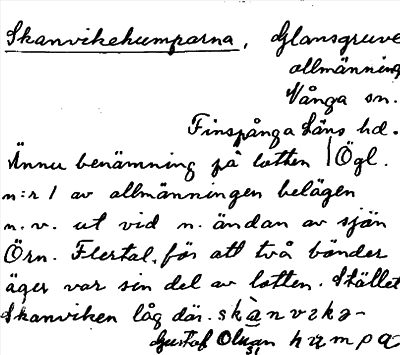 Skanvikehumparna, Glansgruve
allmänning
Vånga sn.
Finspånga Läns hd.
Ännu benämning på lotten | Ögl.
n:r 1 av allmänningen belägen
n.v. ut vid n. ändan av sjön
Örn. Flertal, för att två bönder
äger var sin del av lotten. Stället
Skanviken låg där. skànvɛkə-
Gustaf Olsson hu̇mpa